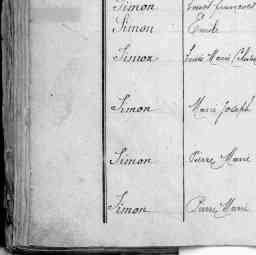 Simon Ernest François
Simon Émile
Simon Marie
Simon Marie Joseph
Simon Pierre Marie
Simon Pierre Marie